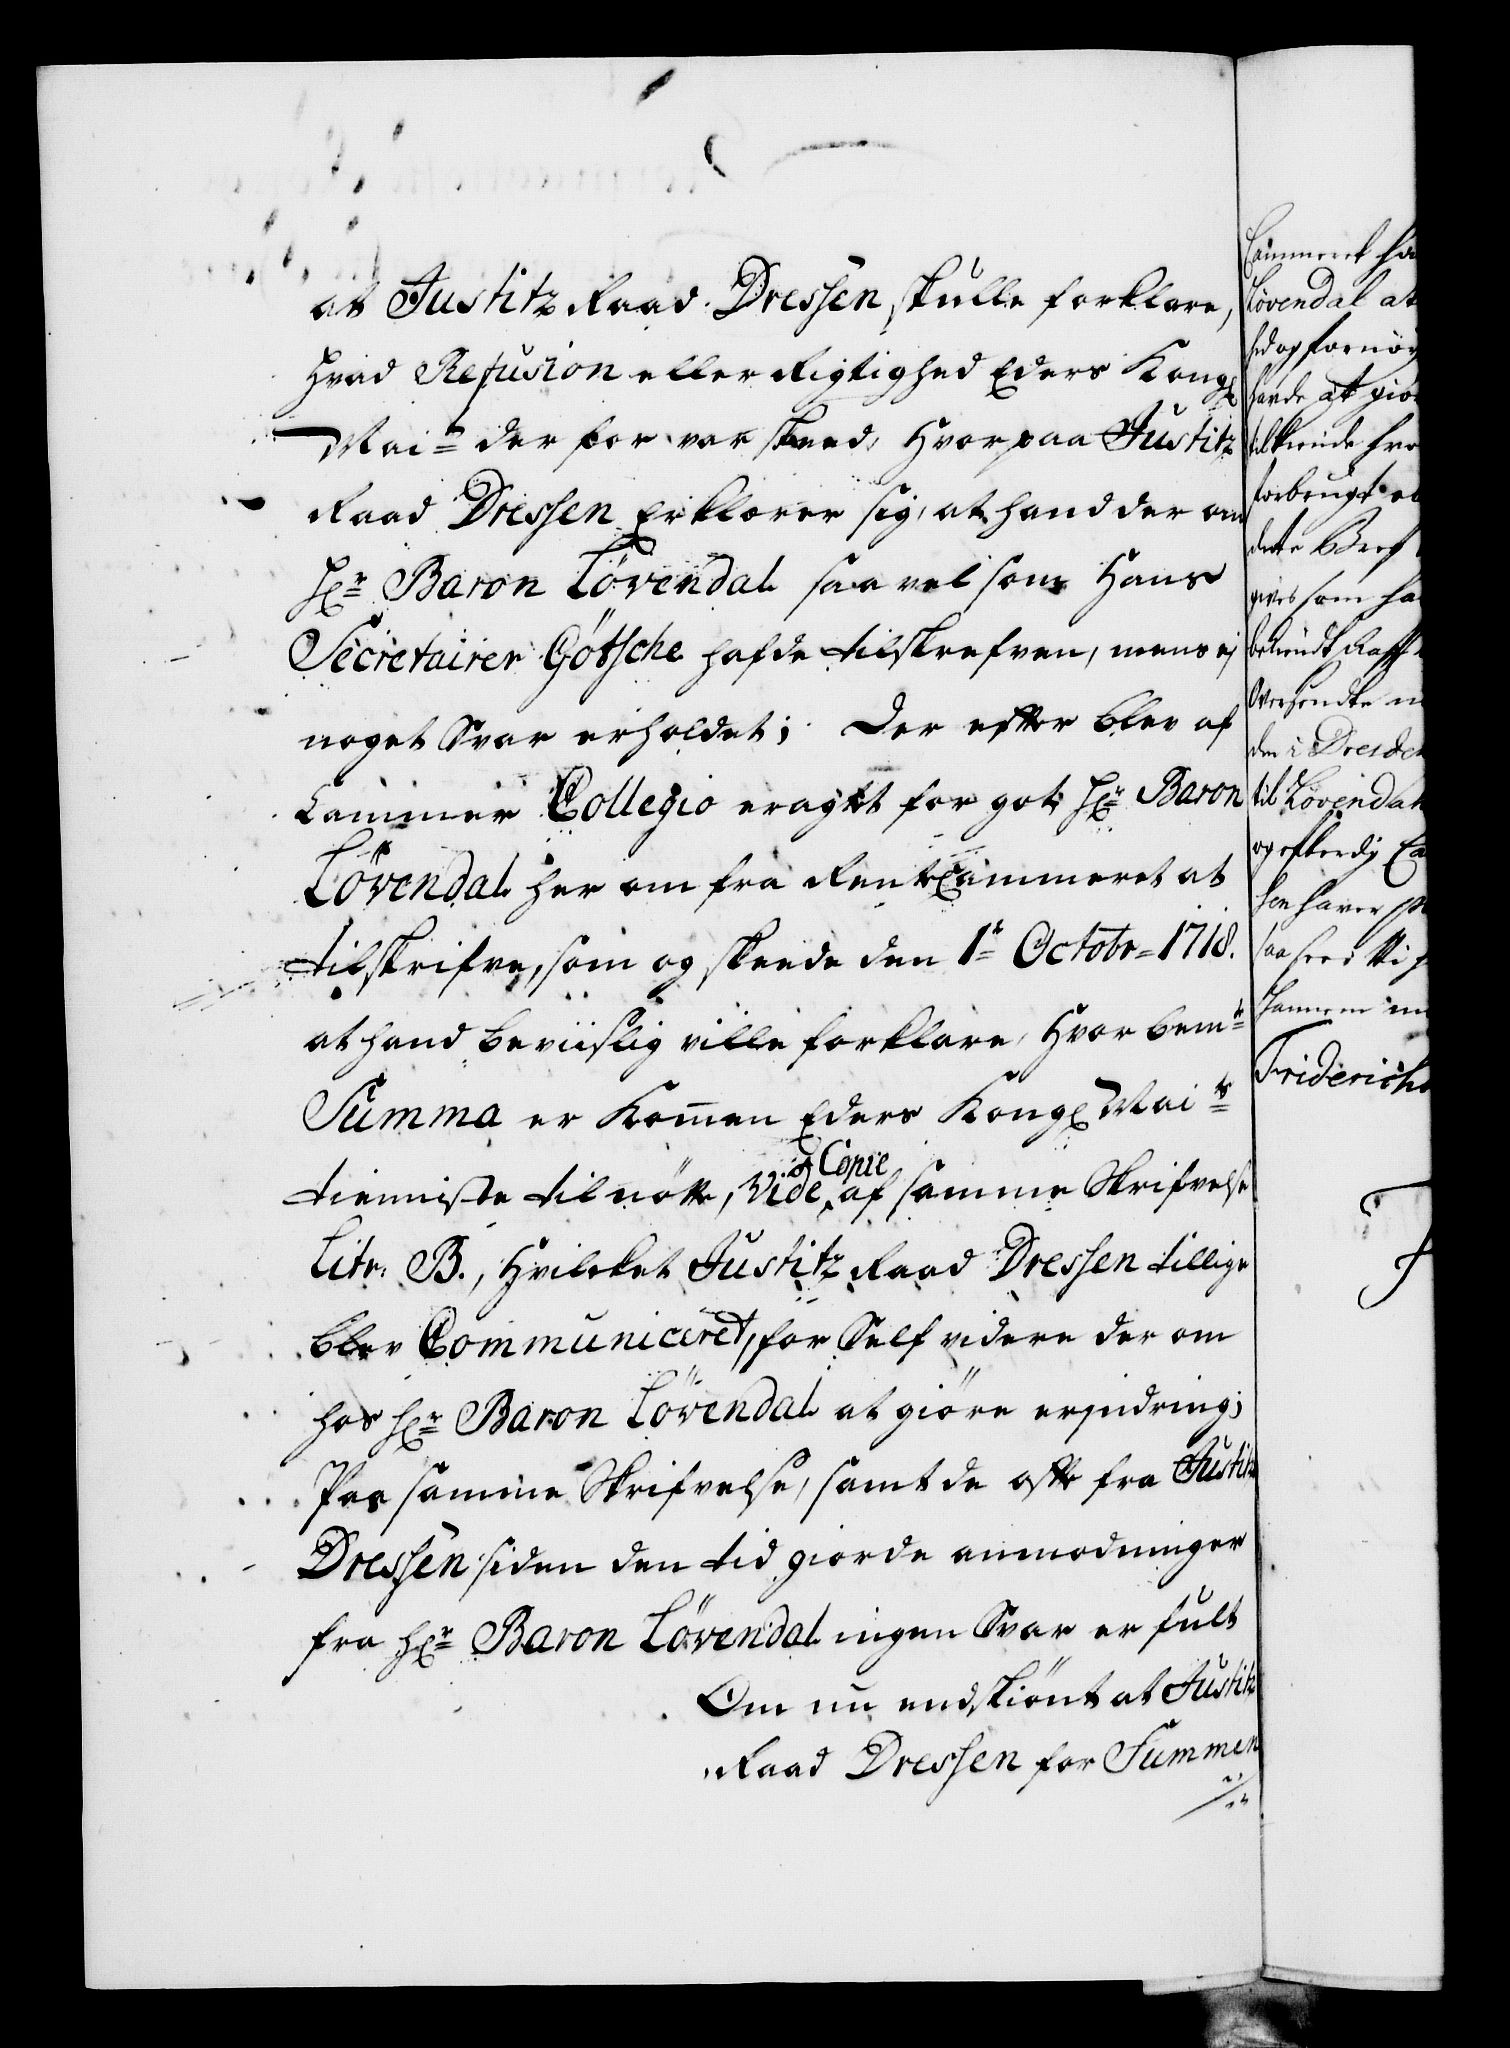 at Justitz Raad Dressen skulle forklare,
Hvad Refusion eller Rigtighed Eders Kongl
Mai_ts_ der for var skeed, Hvorpaa Justitz
Raad Dressen Erklærer sig, at hand der om
Hr Baron Lövendal saa vel som Hans
Secretairer Götsche hafde tilskrefven, mens ej
noget Svar erholdet; Der effter blev af
Cammer Collegio eragtet for got Hr Baron
Lövendal her om fra RenteCammeret at
tilskrifve, som og skeede den 1te Octobr 1718.
at hand beviislig ville forklare, Hvor bemte
Summa er Kommen Eders Kongl Maits
tienniste til nötte, Vide Copie af samme Skrifvelse
Litr. B., Hvilcket Justitz Raad Dressen tillige
blev Communiceret, for Self videre der om
hos Hr Baron Lövendal at giöre erindring;
Paa samme Skrifvelse, samt de offte fra Justitz
Dressen siden den tid giorde anmodninger
fra Hr Baron Lövendal ingen Svar er fult
Om nu endskiönt at Justitz
Raad Dressen for Summen
Cammeret
Lövendal at
hed og fornöy
havde at giö
tilkiende
forbrugt
dette Bref
gives som
bekiendt
Oversendte
den i Dresden
til Lövendal
og efterdj
hen haver
saa
hannem
Friderich